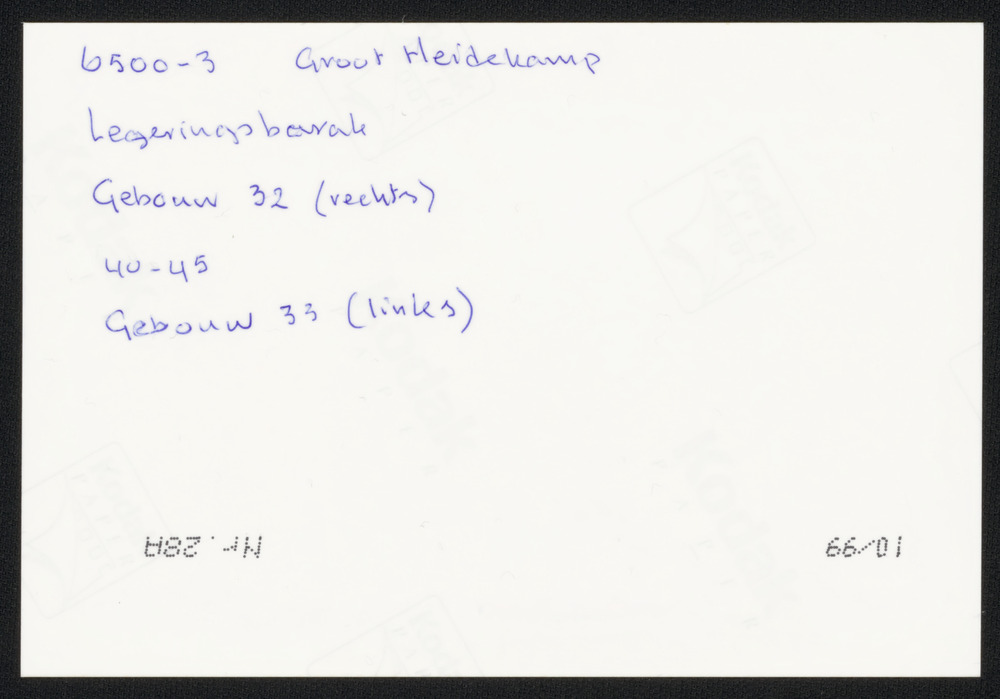 6500-3 Groot Heidekamp
Legeringsbarak
Gebouw 32 (rechts)
40-45
Gebouw 33 (links)
Nr. 28A
10/99